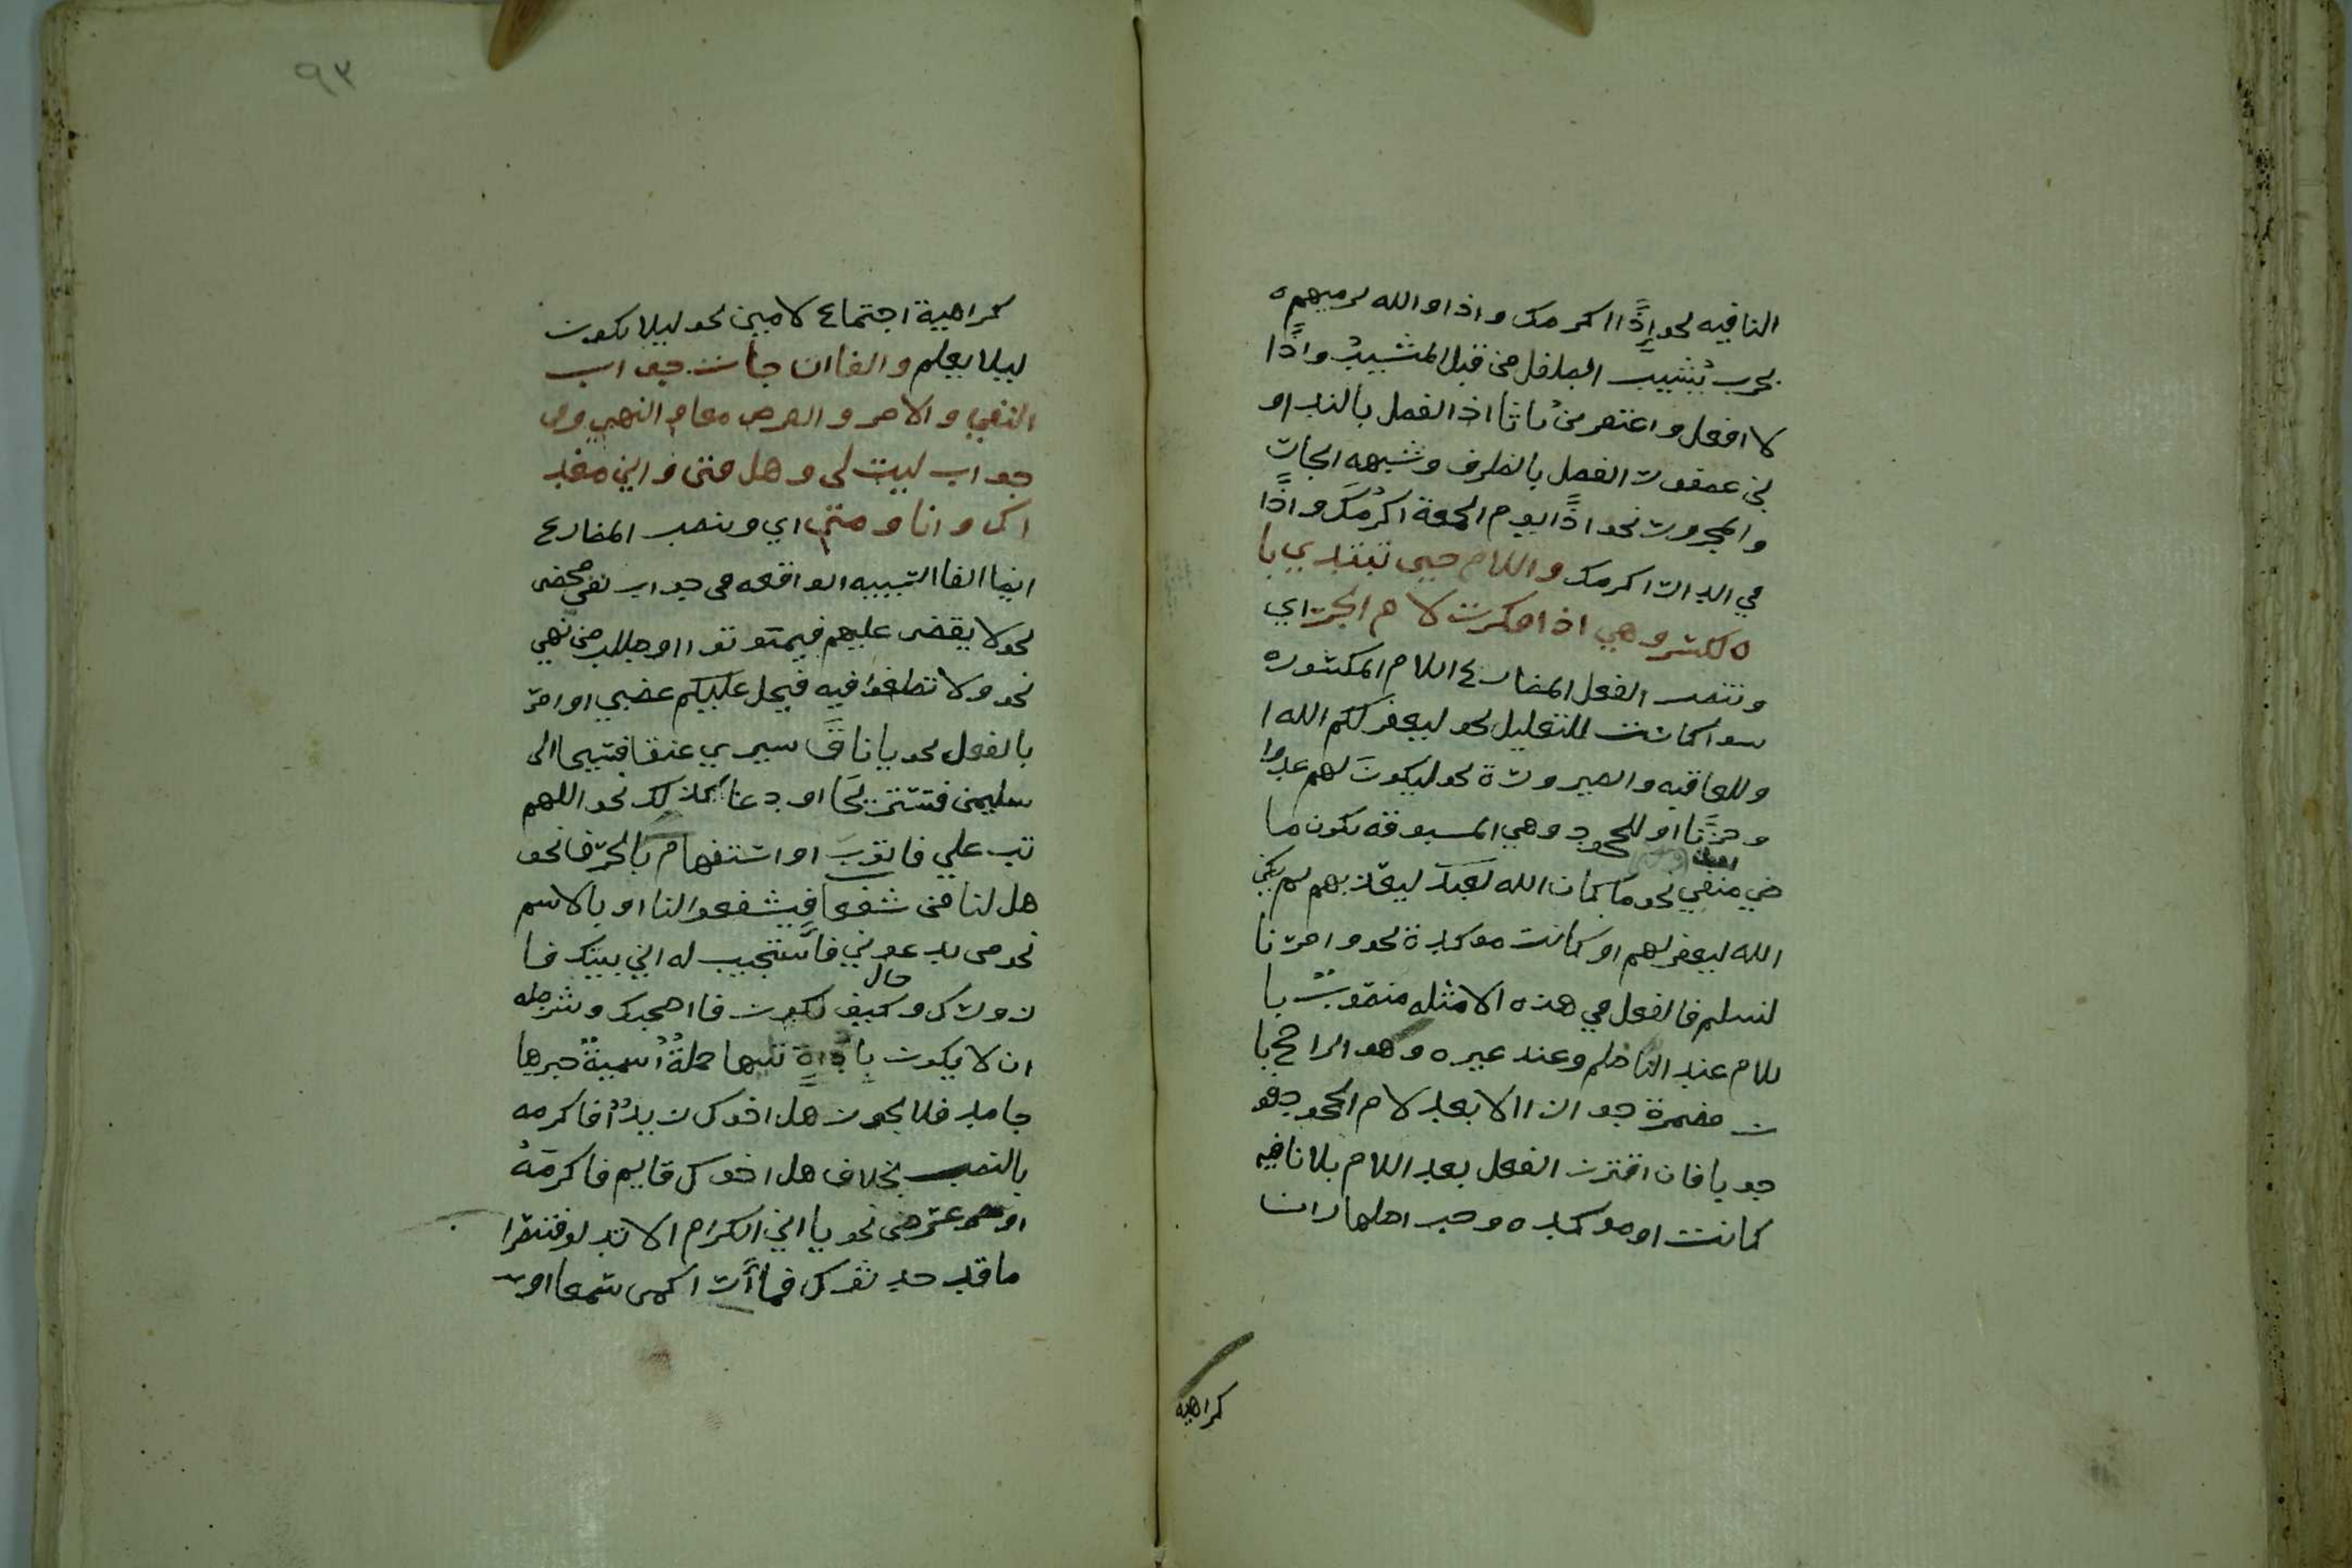 النافيه نحو إذًا اكرمك واذا والله نرميهم
بحرب تُشيب الطفل من قبل المشيب واذًا
لا افعل واغتفر من باثا اذ الفصل بالندا و
بن عصفور الفصل بالظرف وشبهه الجات
والمجرور نحو اذًا يوم الجمعة اكرُمَك واذًا
في الدار اكرمك واللام حين تبتدي با
ه لكسر وهي اذا فكرت لام الجر اي
وتنصب الفعل المضارع اللام المكسوره
سوا كانت للتعليل نحو ليغفر لكم الله ا
وللعاقبه والصيرورة نحو ليكونَ لهم عدوا
وحزَنا او للجحود وهي المسبوقه بكون ما
ضي منفي نحو ما كان الله ليعذبهم لم يكن
الله ليغفر لهم او كانت موكدة نحو وامرنا
لنسلم فالفعل في هذه الامثله منصوب با
للام عند الناظم وعند غيره وهو الراجح با
ن مضمرة جوازا الا بعد لام الجحود فو
جوبا فان اقترن الفعل بعد اللام بلا نافيه
كانت او موكده وجب اظهار ان
كراهيه
٩٣
كراهية اجتماع لامين نحو ليلا يكون
ليلا يعلم والفا ان جات جواب
النفي والامر والعرض معا والنهي وفي
جواب ليت لي وهل فتى واين مغد
اك وانا ومتى اي وينصب المضارع
ايضا الفا السببيه الواقعه في جواب نفي محض
نحو لا يقضى عليهم فيموتوا او طلب من نهي
نحو ولا تطغوا فيه فيحل عليكم غضبي او امر
بالفعل نحو يا ناقَ سيري عنقا فسيحا الى
سليمن فنستريحَا او دعا كذلك نحو اللهم
تب علي فاتوبَ او استفهام بالحرف نحو
هل لنا من شفعا فيشفعوا لنا او بالاسم
نحو من يدعوني فاستجيب له اين بيتك فا
زورك وكيف تكون فاصحبك وشرطه
حال
ان لا يكون باداةٍ تليها جملةٌ اسميةٌ خبرها
جامد فلا يجوز هل اخوك زيدٌ فاكرمه
بالنصب بخلاف هل اخوك قايم فاكرمَهُ
او عرض نحو يا ابن الكرام الا تدنو فتبصرا
ما قد حدثوك فما راءٍ كمن سمعا او